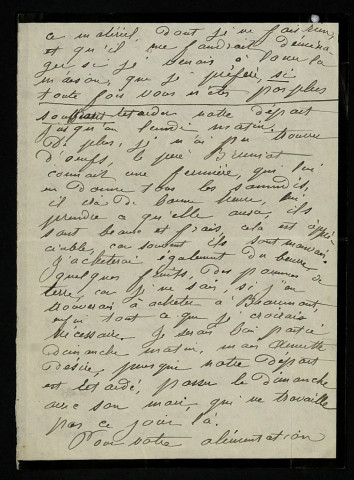 ce matériel, dont je me fais
et qu'il me faudrait déména
ger si je venais à louer la
maison, que je préfère, si
toute fois vous n'êtes pas plus
souffrant retarder notre départ
jusqu'au lundi matin.
De plus, je n'ai pu trouver
d'oeufs, le père Brunat
connait une fermière, qui lui
en donne tous les samedis,
il ira de bonne heure, lui
prendre ce qu'elle aura, ils
sont beaux et frais, cela est appré
ciable, car souvent ils sont mauvais.
J'achèterai également du beurre,
quelques fruits, des pommes de
terre, car je ne sais, si j'en
trouverais à acheter à Beaumont,
enfin tout ce que je croirais
nécessaire. Je serais bien partie
Dimanche matin, mais
Désire, puisque notre départ
est retardé, passer le Dimanche
avec son mari, qui ne travaille
pas ce jour là.
Pour votre alimentation